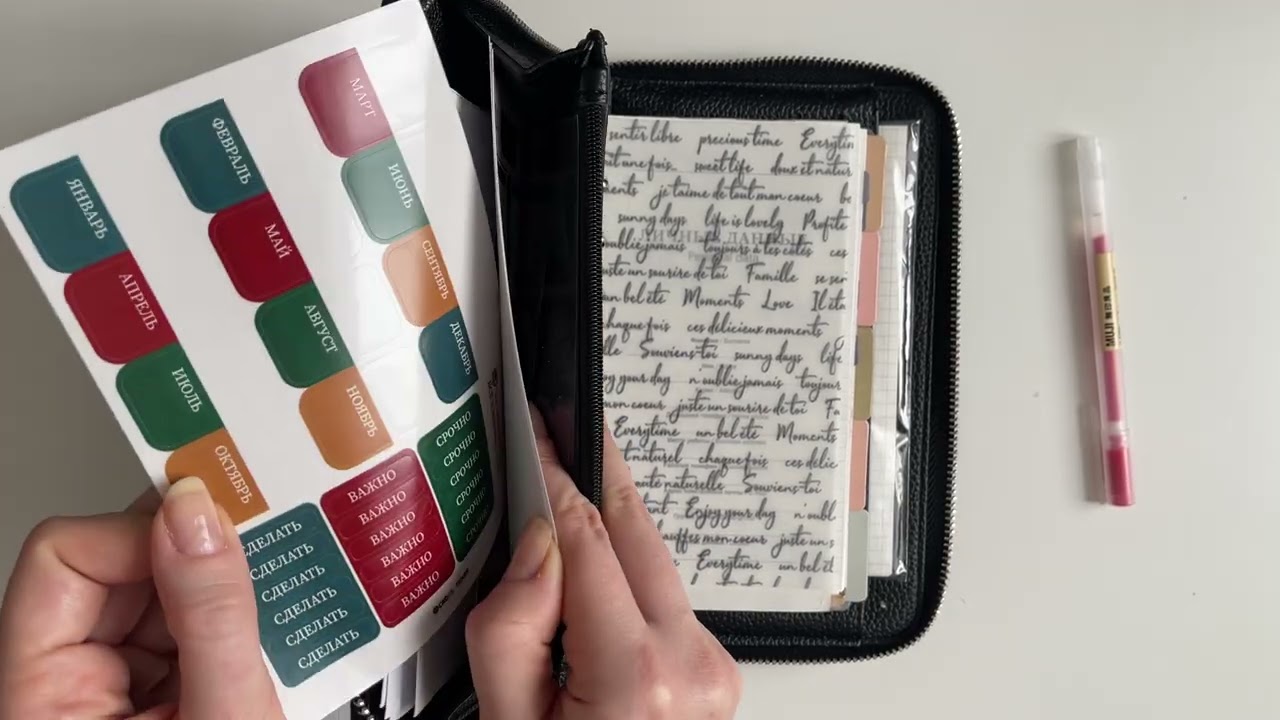 ЯНВАРЬ
ФЕВРАЛЬ
МАРТ
АПРЕЛЬ
МАЙ
ИЮНЬ
ИЮЛЬ
АВГУСТ
СЕНТЯБРЬ
ОКТЯБРЬ
НОЯБРЬ
ДЕКАБРЬ
СДЕЛАТЬ
СДЕЛАТЬ
СДЕЛАТЬ
СДЕЛАТЬ
СДЕЛАТЬ
СДЕЛАТЬ
ВАЖНО
ВАЖНО
ВАЖНО
ВАЖНО
ВАЖНО
ВАЖНО
СРОЧНО
СРОЧНО
СРОЧНО
СРОЧНО
СРОЧНО
sentir libre precious time Everytim
it une fois. sweet life doux et natur
ments je t'aime de tout mon coeur be
sunny days life is lovely Profite
oublie jamais toujours à tes côtés ces
ЛИЧНЫЕ ДАННЫЕ
Personal data
uste un sourire de toi Famille se ser
un bel été Moments Love Il éta
chaque fois ces délicieux moments
lle Souviens-toi sunny days life
oy your day n'oublie jamais toujour
mon coeur juste un sourire de toi Fa
Everytime un bel été Moments
t naturel chaque fois ces délic
auté naturelle Souviens-toi
ant Enjoy your day n'oubl
auffes mon coeur juste un s
Everytime un bel ét
MUJI 無印良品